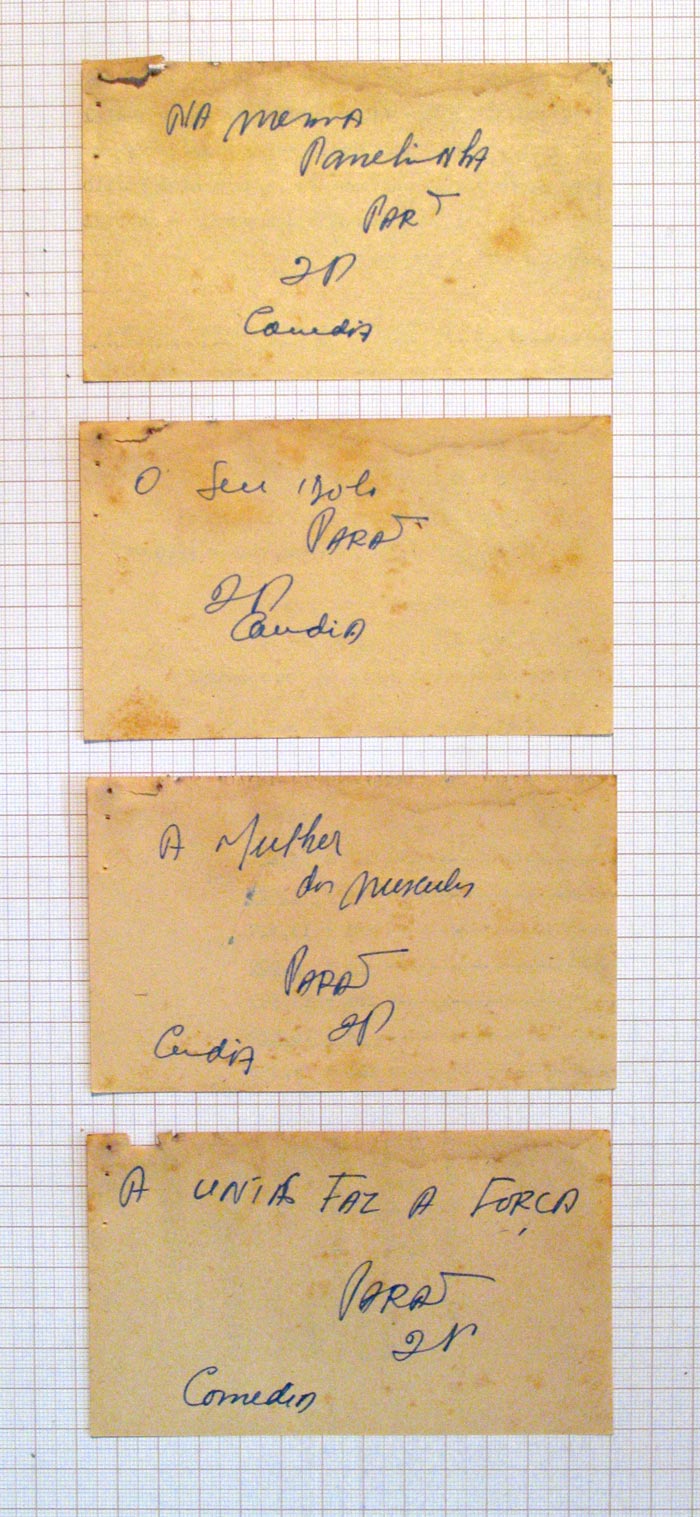 NA mesma
Panelinha
PART
2P
Comedia
O Seu idolo
PARAT
2P
Comedia
A Mulher
dos musculos
PARAT
2P
Comedia
A UNIÃO FAZ A FORÇA
PARAT
2P
Comedia